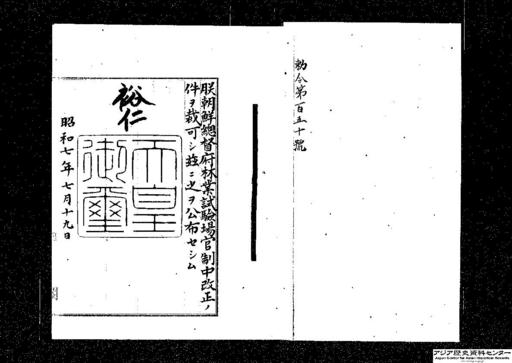 勅令第百五十號
朕朝鮮總督府林業試驗場官制中改正ノ
件ヲ裁可シ玆ニ之ヲ公布セシム
裕仁
天皇
御璽
昭和七年七月十九日
アジア歴史資料センター
Japan Center for Asian Historical Records